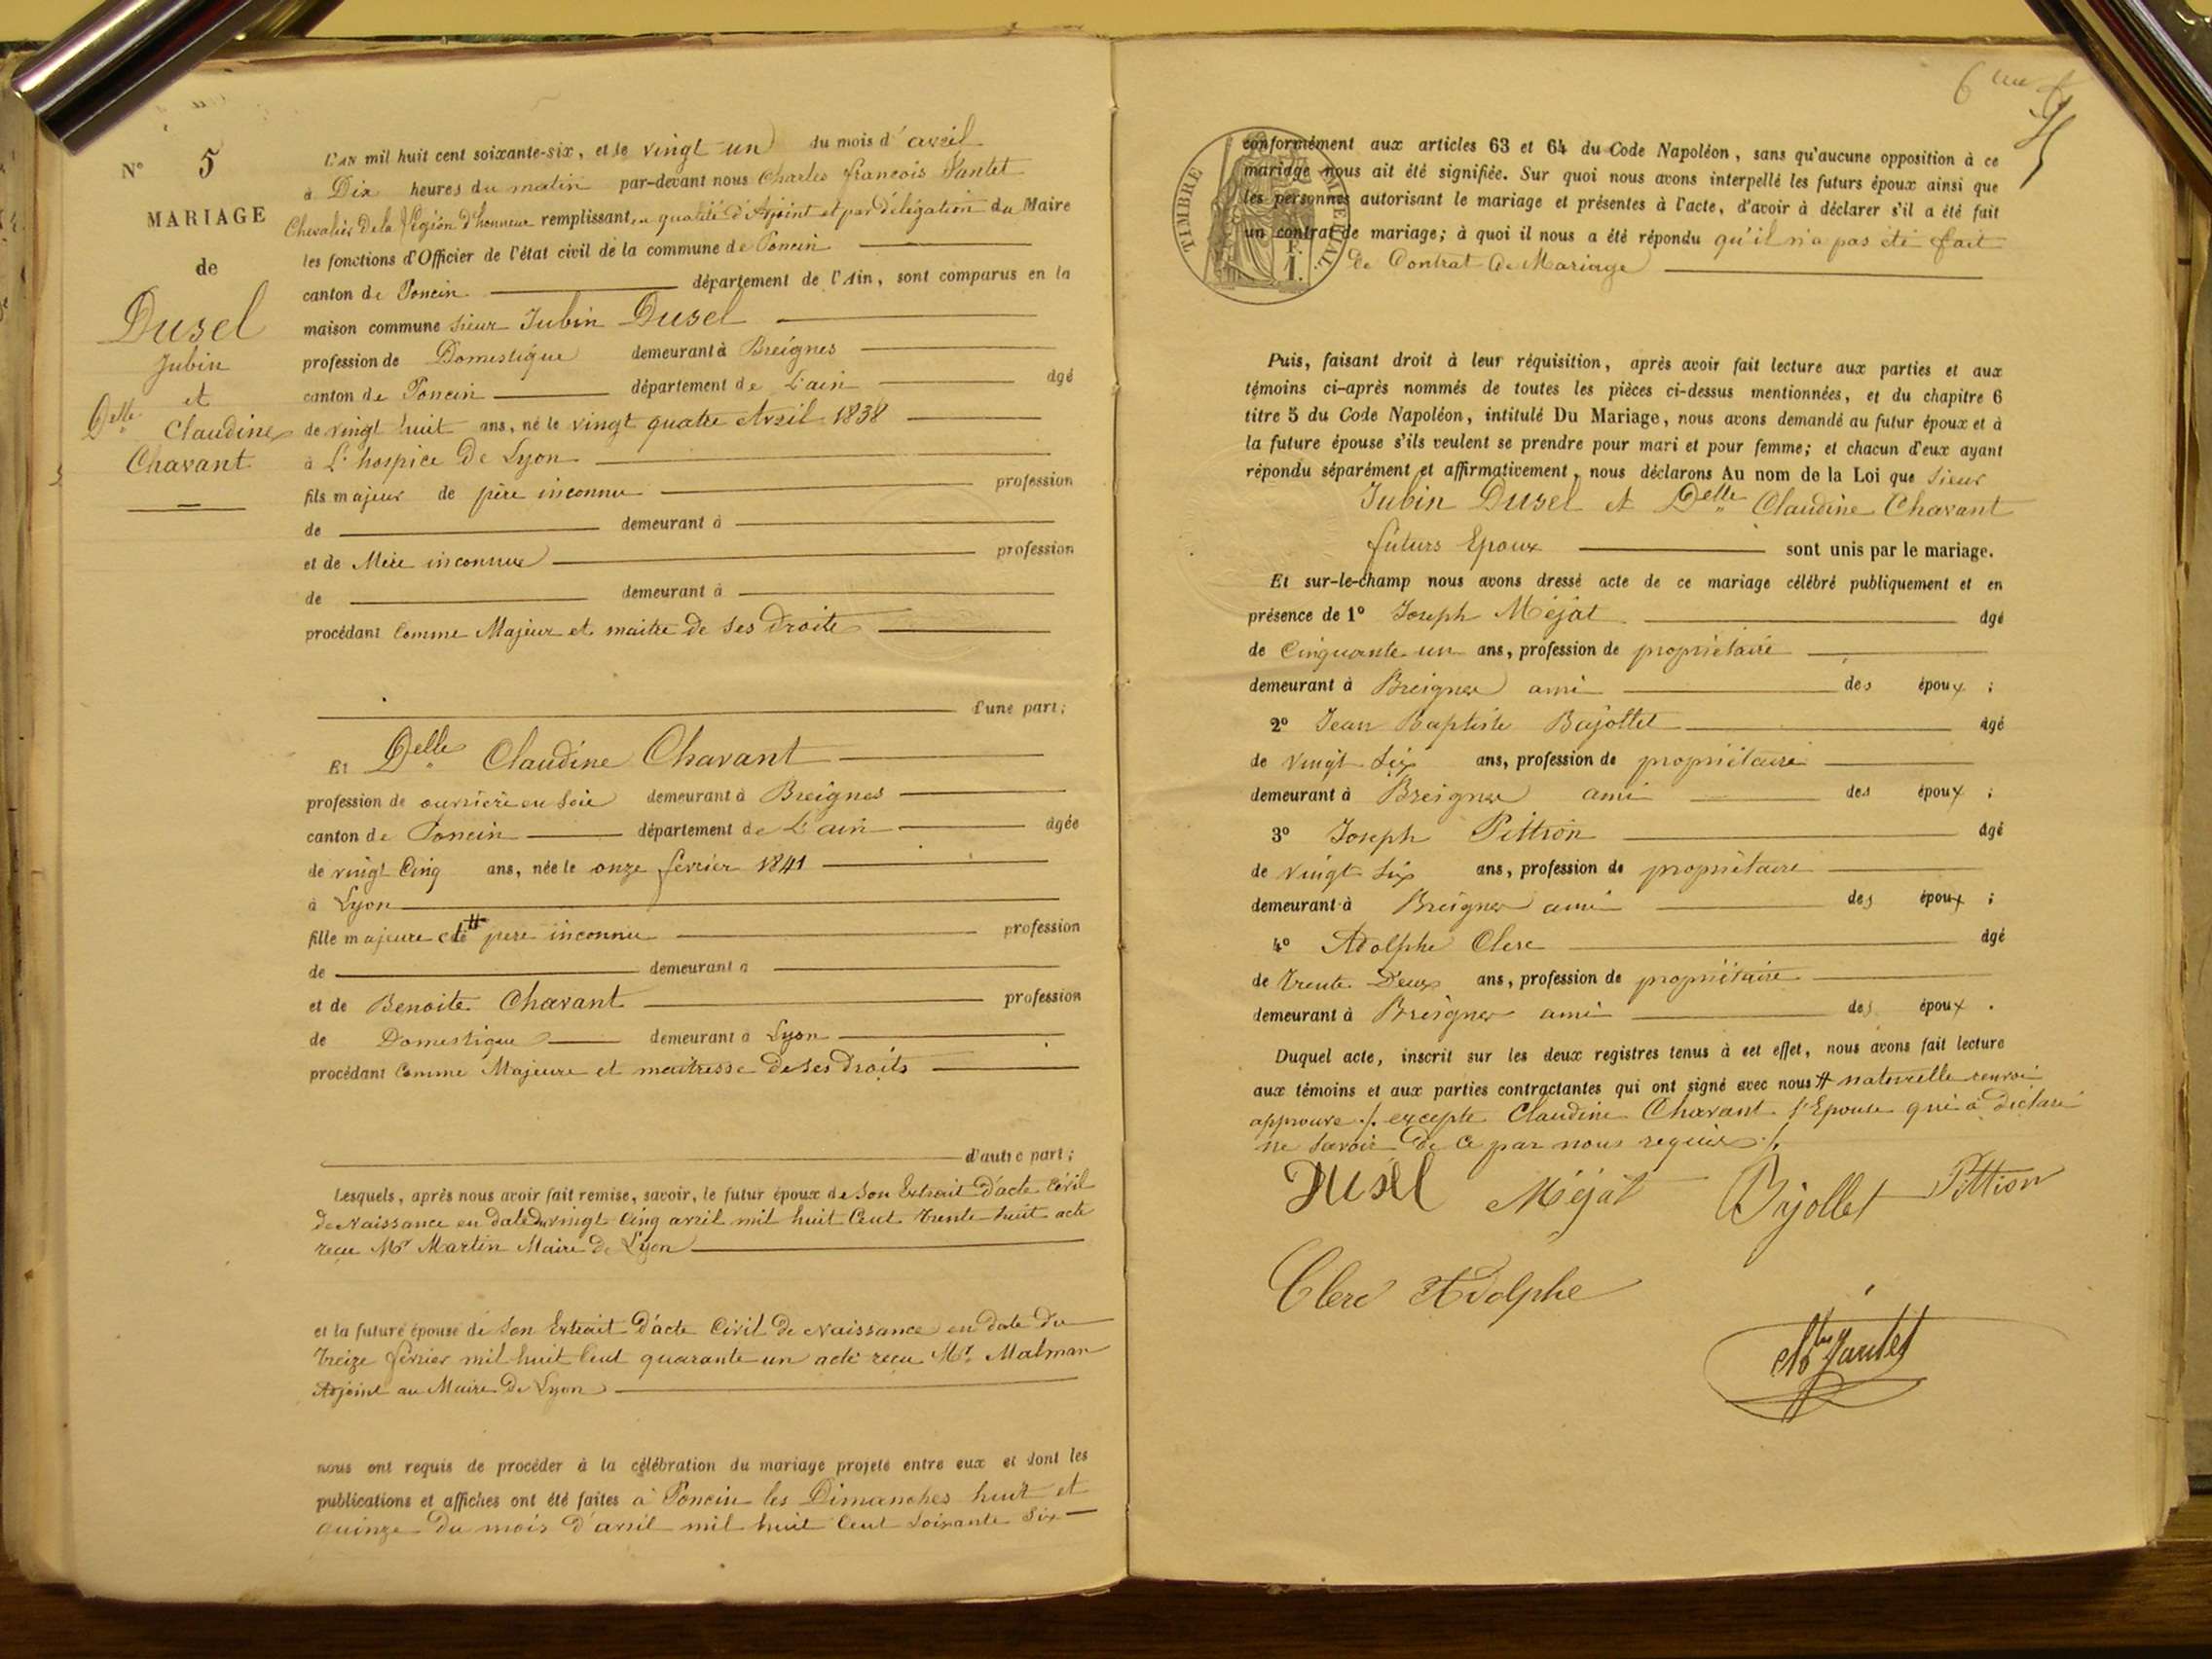 N° 5
MARIAGE
de
Dusel
Jubin
et
Delle Claudine
Chavant
L'AN mil huit cent soixante-six, et le vingt un du mois d'avril
à Dix heures du matin par-devant nous Charles françois Vantet
Chevalier de la Légion d'honneur remplissant, en qualité d'Adjoint et par Délégation du Maire
les fonctions d'Officier de l'état civil de la commune de Poncin
canton de Poncin département de l'Ain, sont comparus en la
maison commune sieur Jubin Dusel
profession de Domestique demeurant à Breignes
canton de Poncin département de L'ain âgé
de vingt huit ans, né le vingt quatre Avril 1838
à L'hospice De Lyon
fils majeur de père inconnu profession
de demeurant à
et de Mère inconnue profession
de demeurant à
procédant Comme Majeur et maitre de ses droits
d'une part;
Et Delle Claudine Chavant
profession de ouvrière en soie demeurant à Breignes
canton de Poncin département de L'ain âgée
de vingt Cinq ans, née le onze février 1841
à Lyon
fille majeure # père inconnu profession
de demeurant à
et de Benoite Chavant profession
de Domestique demeurant à Lyon
procédant Comme Majeure et maitresse de ses Droits
d'autre part;
Lesquels, après nous avoir fait remise, savoir, le futur époux de son Extrait D'acte Civil
de Naissance en date du vingt Cinq avril mil huit Cent trente huit acte
reçu Mr Martin Maire de Lyon
et la future épouse de son Extrait D'acte Civil De Naissance en date du
treize février mil huit Cent quarante un acte reçu Mr Malman
Adjoint au Maire De Lyon
nous ont requis de procéder à la célébration du mariage projeté entre eux et dont les
publications et affiches ont été faites à Poncin les Dimanches huit et
quinze du mois D'avril mil huit Cent soixante six
TIMBRE IMPÉRIAL
1 F.
conformément aux articles 63 et 64 du Code Napoléon, sans qu'aucune opposition à ce
mariage nous ait été signifiée. Sur quoi nous avons interpellé les futurs époux ainsi que
les personnes autorisant le mariage et présentes à l'acte, d'avoir à déclarer s'il a été fait
un contrat de mariage; à quoi il nous a été répondu qu'il n'a pas été fait
de Contrat de Mariage
Puis, faisant droit à leur réquisition, après avoir fait lecture aux parties et aux
témoins ci-après nommés de toutes les pièces ci-dessus mentionnées, et du chapitre 6
titre 5 du Code Napoléon, intitulé Du Mariage, nous avons demandé au futur époux et à
la future épouse s'ils veulent se prendre pour mari et pour femme; et chacun d'eux ayant
répondu séparément et affirmativement, nous déclarons Au nom de la Loi que sieur
Jubin Dusel et Delle Claudine Chavant
futurs Epoux sont unis par le mariage.
Et sur-le-champ nous avons dressé acte de ce mariage célébré publiquement et en
présence de 1° Joseph Méjat âgé
de Cinquante un ans, profession de propriétaire
demeurant à Breignes ami des époux ;
2° Jean Baptiste Bajollet âgé
de vingt six ans, profession de propriétaire
demeurant à Breignes ami des époux ;
3° Joseph Pittion âgé
de vingt six ans, profession de propriétaire
demeurant à Breignes ami des époux ;
4° Adolphe Clerc âgé
de trente Deux ans, profession de propriétaire
demeurant à Breignes ami des époux .
Duquel acte, inscrit sur les deux registres tenus à cet effet, nous avons fait lecture
aux témoins et aux parties contractantes qui ont signé avec nous # naturelle renvoi
approuvé ./. excepté Claudine Chavant l'Epouse qui a déclaré
ne savoir de ce par nous requise ./.
Dusel Méjat Bajollet Pittion
Clerc Adolphe